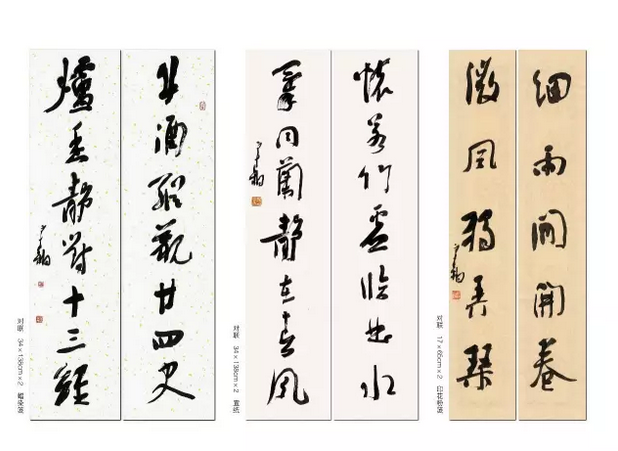 斗酒縱觀廿四史
爐香靜對十三經
对联 34×138cm×2
懷若竹虛臨曲水
氣同蘭靜在春風
对联 34×138cm×2 宣纸
細雨閒開卷
微風獨弄琴
对联 17×66cm×2